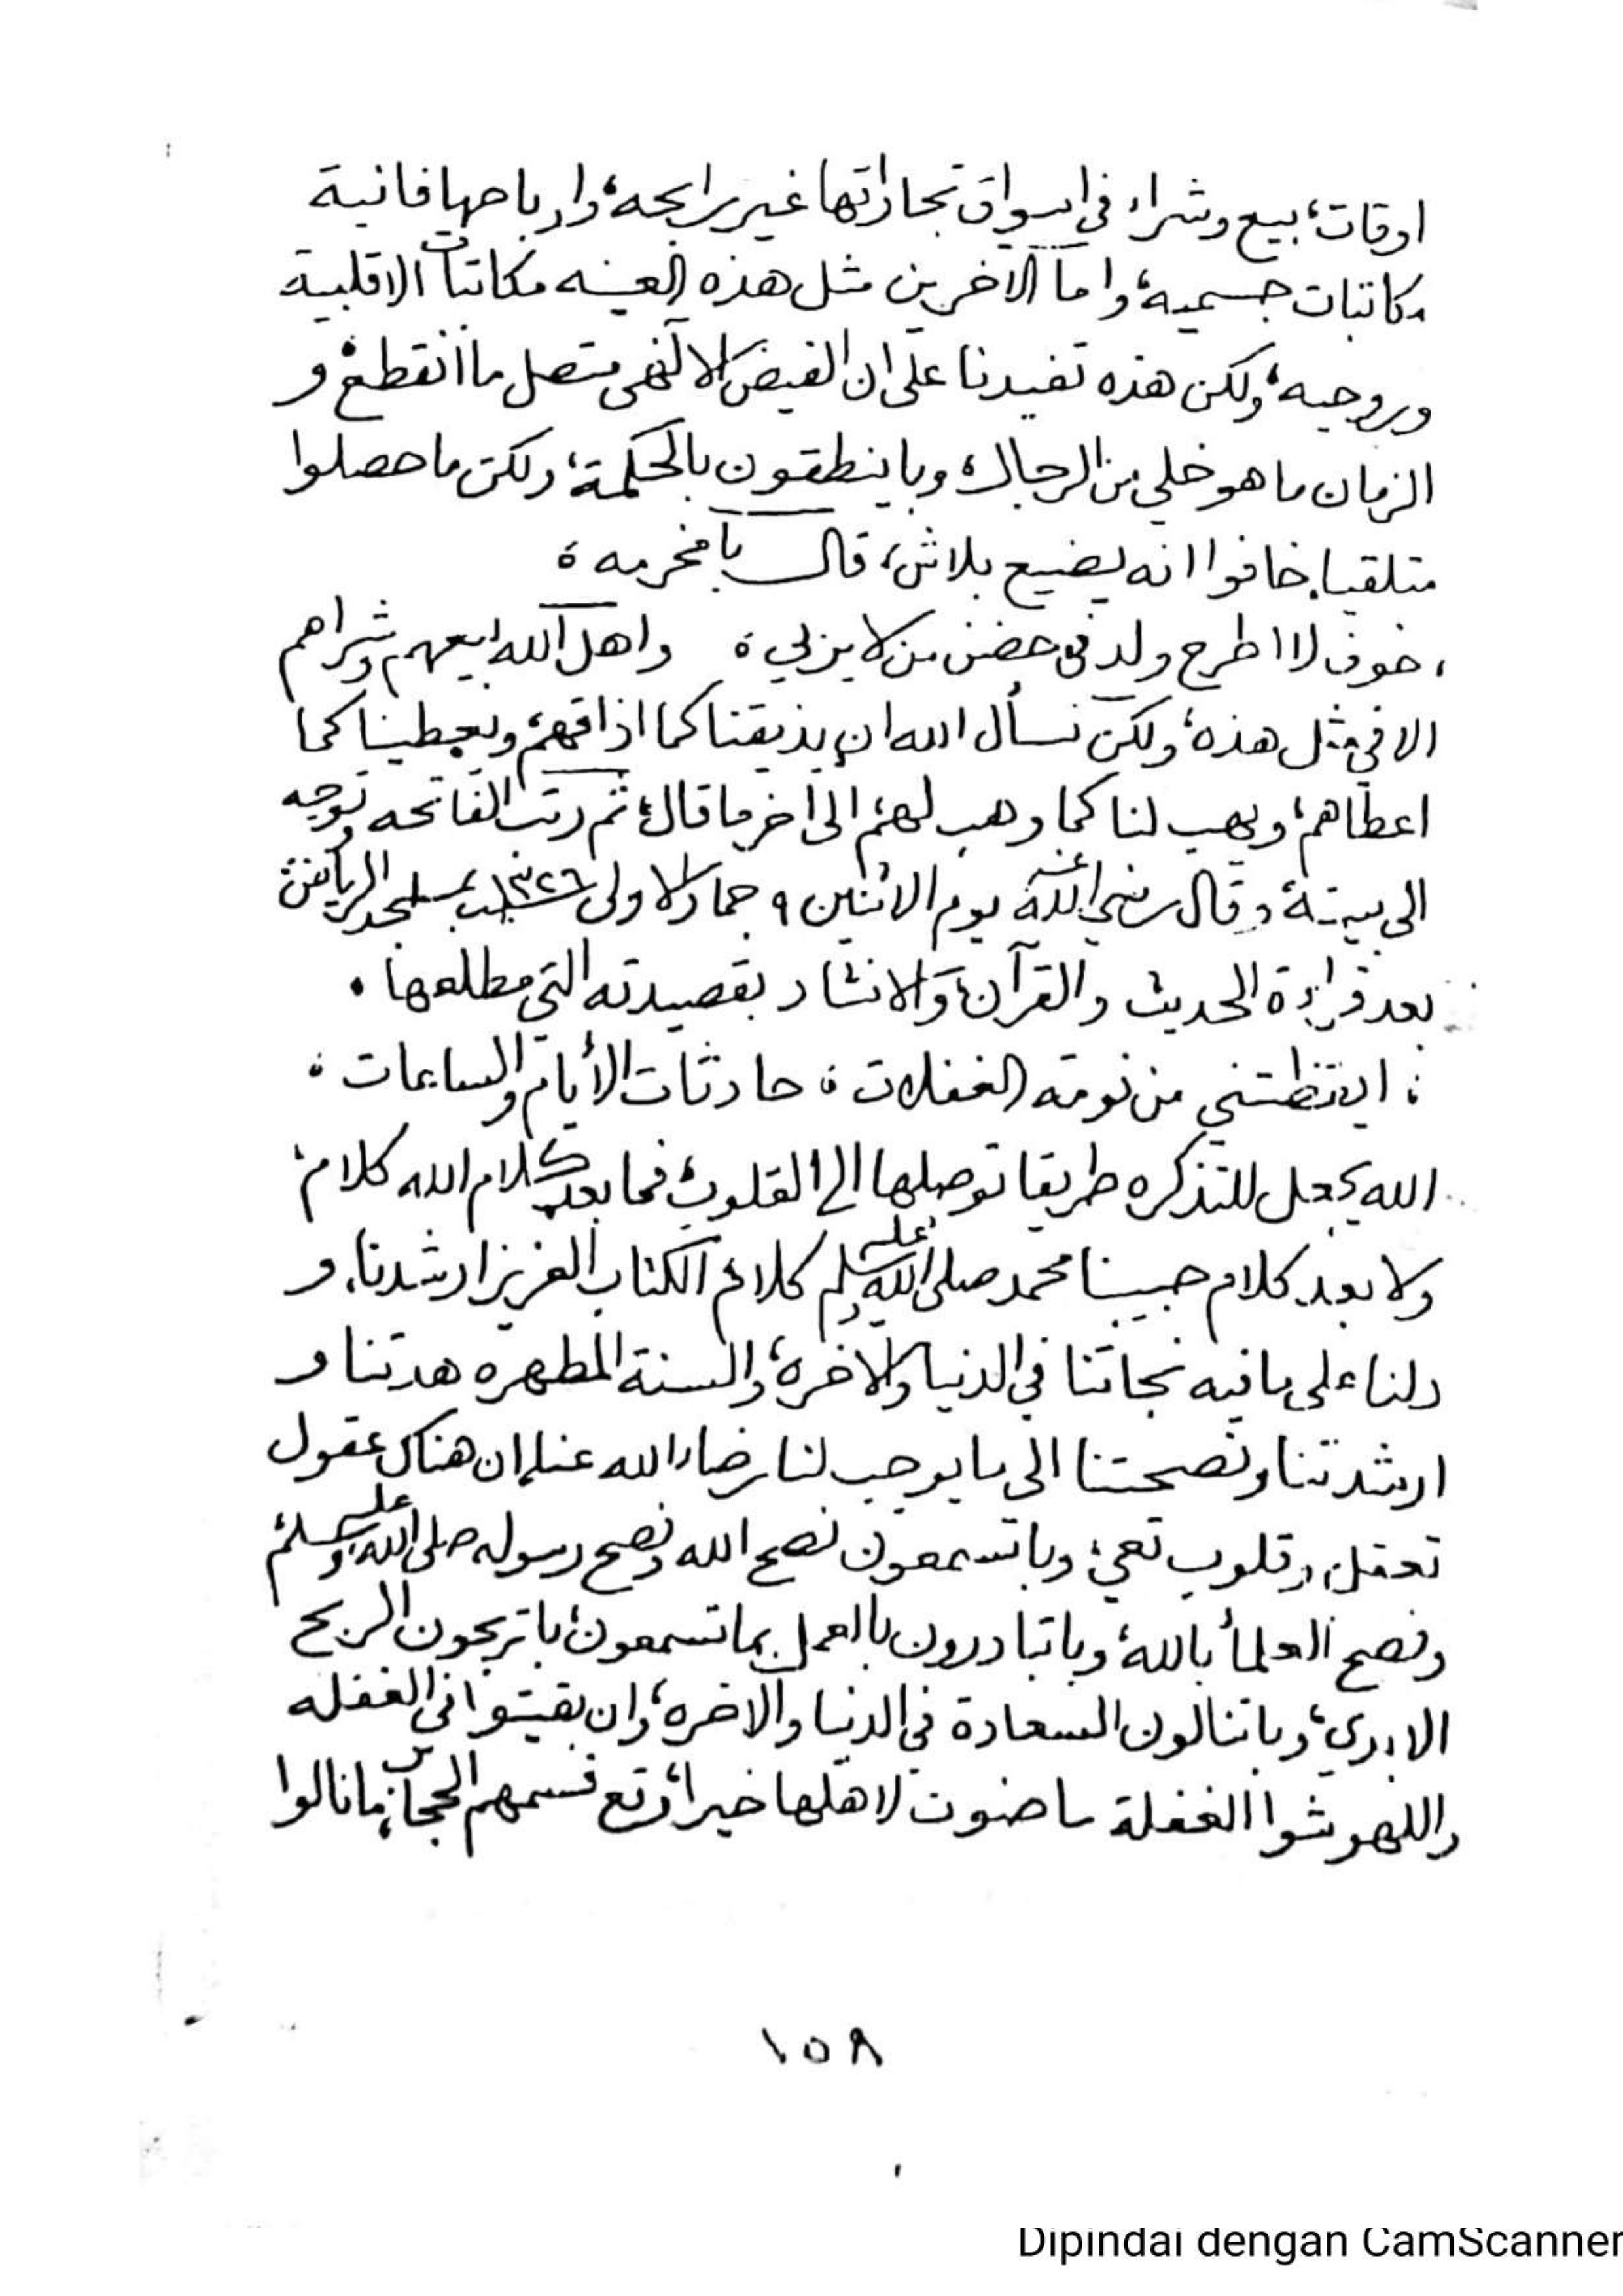 اوقات، بيع وشراء في اسواق تجاراتها غير رابحه، وارباحها فانية
مكاتبات جسميه، واما الاخرين مثل هذه العينه مكاتبات الا قلبية
وروحيه، ولكن هذه تفيدنا على ان الفيض الالهي متصل ما انقطع، و
الزمان ما هو خلي من الرجال، وباينطقون بالحكمة، ولكن ما حصلوا
متلقيا، خافوا انه يضيع بلاش، قال بامخرمه ؛
، خوف لا اطرح ولد في حضن من لا يزلي ؛ واهل الله بيعهم وشراهم
الا في مثل هذه، ولكن نسأل الله ان يذيقنا كما اذاقهم، ويعطينا كما
اعطاهم، ويهب لنا كما وهب لهم، الى آخر ما قال، ثم رتب الفاتحه وتوجه
الى بيته، وقال رضي الله عنه يوم الاثنين ٩ جماد الاولى بمسجد الرياض
بعد قراءة الحديث والقرآن، والانشاد بقصيدته التي مطلعها .
؛ ايقظتني من نومة الغفلات ؛ حادثات الأيام والساعات ؛
الله يجعل للتذكره طريقا توصلها الى القلوب، فما بعد كلام الله كلام،
ولا بعد كلام حبيبنا محمد صلى الله عليه وسلم كلام، الكتاب العزيز ارشدنا، و
دلنا على ما فيه نجاتنا في الدنيا والاخرة، والسنة المطهره هدتنا و
ارشدتنا ونصحتنا الى ما يوجب لنا رضاء الله عنا، ان هناك عقول
تعقل، وقلوب تعي، وباتسمعون نصح الله ونصح رسوله صلى الله عليه وسلم،
ونصح العلمأ بالله، وباتبادرون بالعمل بما تسمعون، باتربحون الربح
الابدي، وباتنالون السعادة في الدنيا والآخره، وان بقيتوا في الغفله
واللهو شوا الغفلة ما ضوت لاهلها خيرا، وقع قسمهم الحجاب، ما نالوا
١٥٨
Dipindai dengan CamScanner